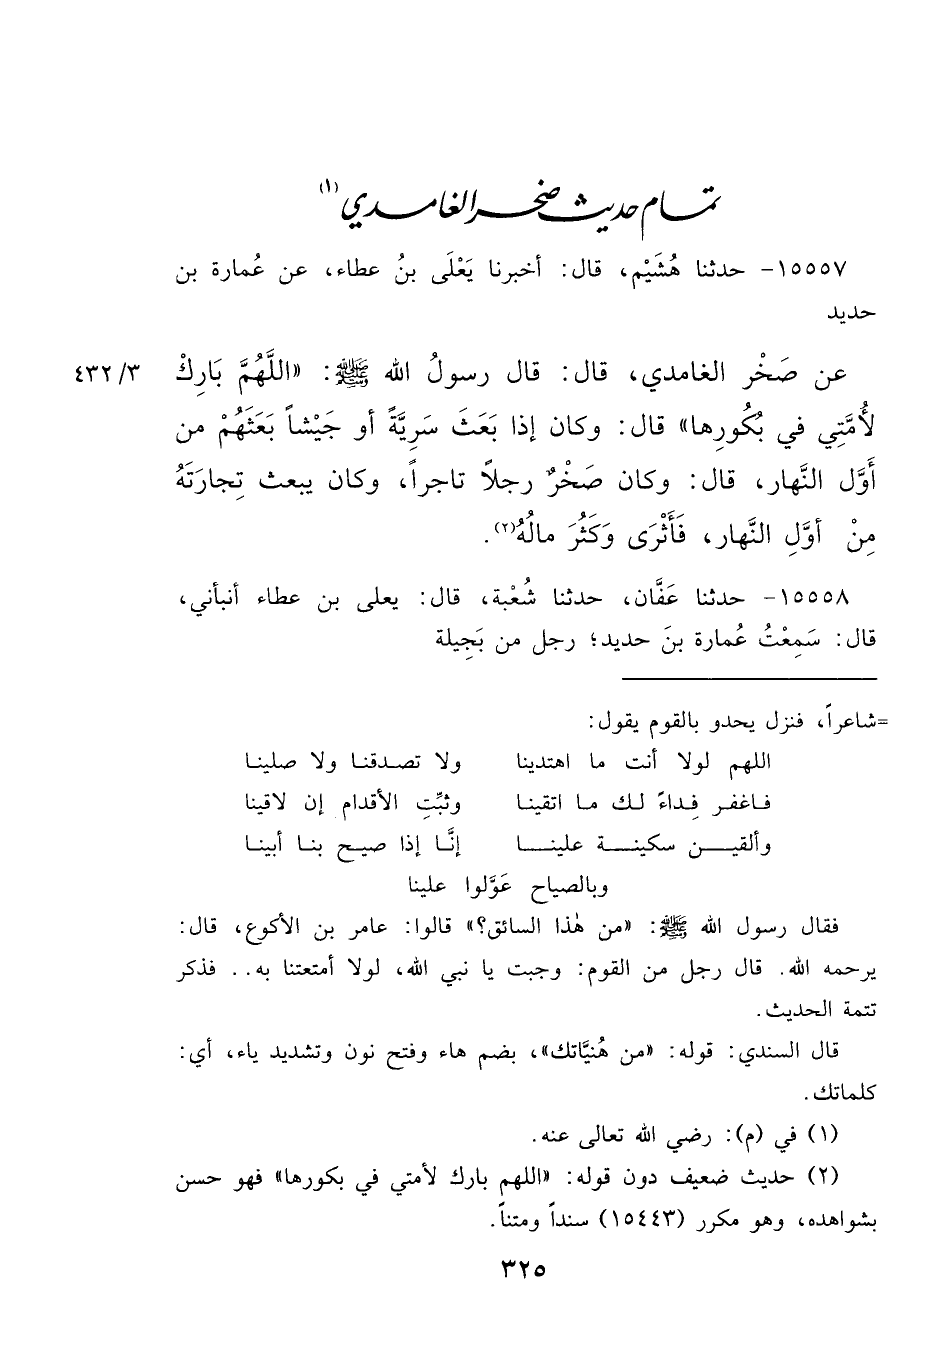 تمام حديث صخر الغامدي(١)
١٥٥٥٧- حدثنا هُشَيْم، قال: أخبرنا يَعْلَى بنُ عطاء، عن عُمارة بن
حديد
عن صَخْر الغامدي، قال: قال رسولُ الله ﷺ: «اللَّهُمَّ بَارِكْ ٤٣٢/٣
لأُمَّتِي في بُكُورِها» قال: وكان إذا بَعَثَ سَرِيَّةً أو جَيْشاً بَعَثَهُمْ من
أَوَّل النَّهار، قال: وكان صَخْرٌ رجلاً تاجراً، وكان يبعث تِجارَتَهُ
مِنْ أوَّلِ النَّهار، فَأَثْرَى وَكَثُرَ مالُهُ(٢).
١٥٥٥٨- حدثنا عَفَّان، حدثنا شُعْبة، قال: يعلى بن عطاء أنبأني،
قال: سَمِعْتُ عُمارة بنَ حديد؛ رجل من بَجِيلة
=شاعراً، فنزل يحدو بالقوم يقول:
اللهم لولا أنت ما اهتدينا ولا تصدقنا ولا صلينا
فاغفر فِداءً لك ما اتقينا وثبِّتِ الأقدام إن لاقينا
وألقين سكينة علينا إنَّا إذا صيح بنا أبينا
وبالصياح عَوَّلوا علينا
فقال رسول الله ﷺ: «من هٰذا السائق؟» قالوا: عامر بن الأكوع، قال:
يرحمه الله. قال رجل من القوم: وجبت يا نبي الله، لولا أمتعتنا به.. فذكر
تتمة الحديث.
قال السندي: قوله: «من هُنيَّاتك»، بضم هاء وفتح نون وتشديد ياء، أي:
كلماتك.
(١) في (م): رضي الله تعالى عنه.
(٢) حديث ضعيف دون قوله: «اللهم بارك لأمتي في بكورها» فهو حسن
بشواهده، وهو مكرر (١٥٤٤٣) سنداً ومتناً.
٣٢٥